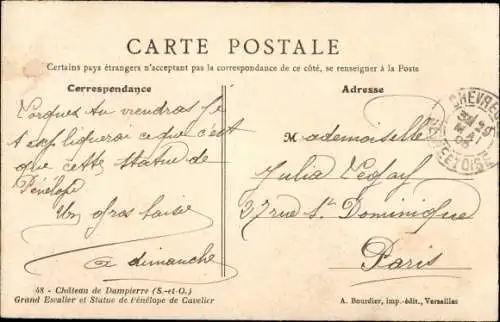 CARTE POSTALE
Certains pays étrangers n'acceptant pas la correspondance de ce côté, se renseigner à la Poste
Correspondance
Lorsques tu viendras je
t'expliquerai ce que c'est
que cette statue de
Pénélope
Un gros baiser
a dimanche
Adresse
Mademoiselle
Julia
27 rue St Dominique
Paris
CHEVREUSE
29
MAI
SEINE ET OISE
48 - Château de Dampierre (S.-et-O.)
Grand Escalier et Statue de Pénélope de Cavelier
A. Bourdier, imp.-édit., Versailles